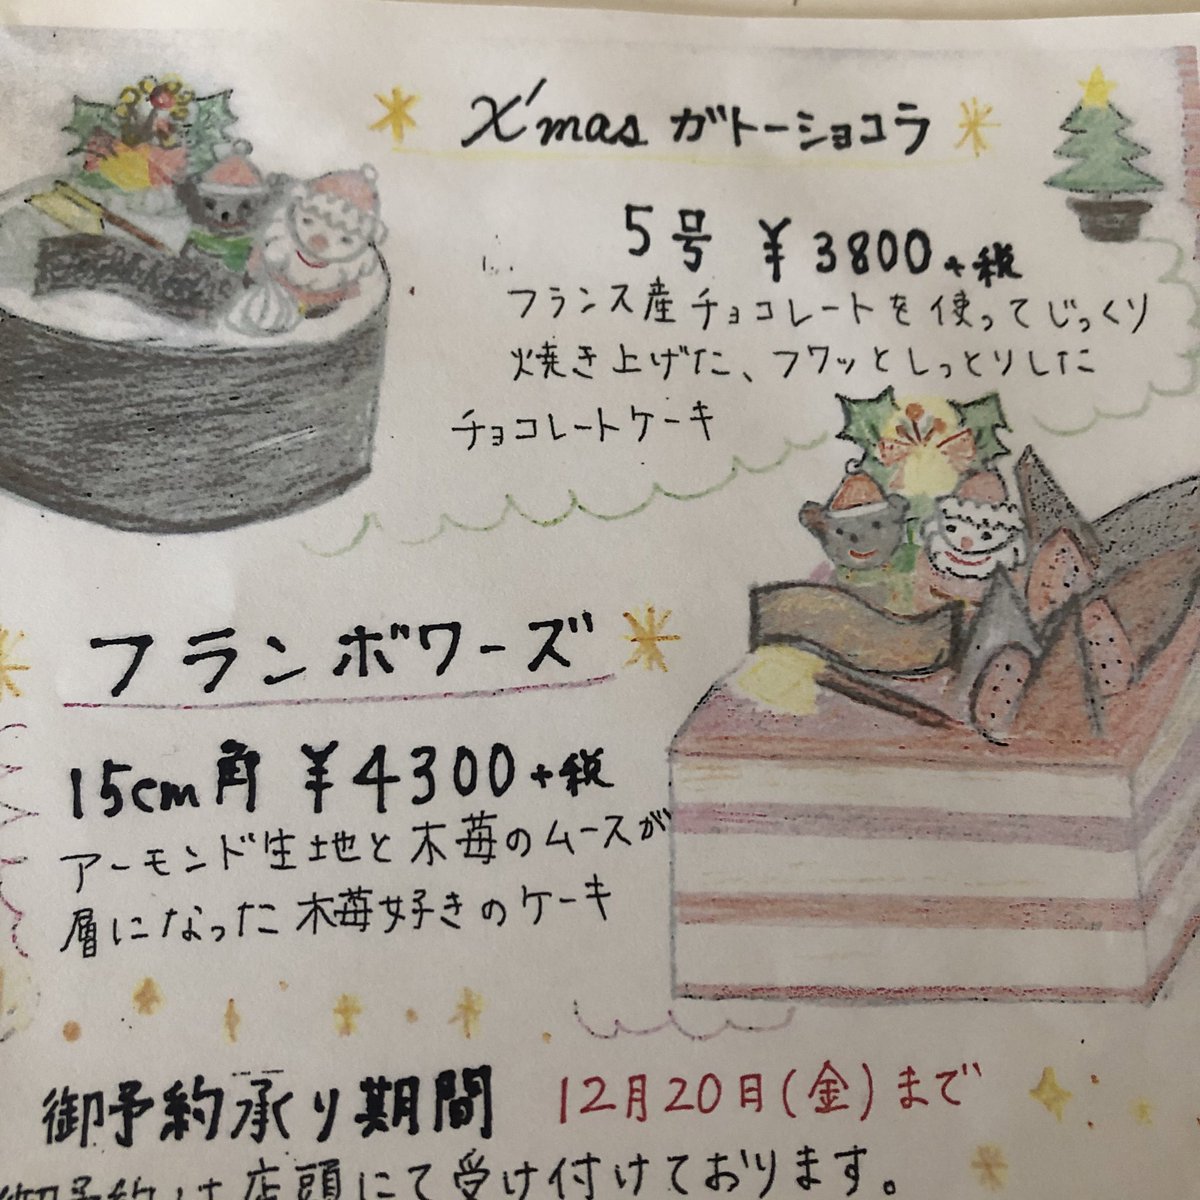 X'mas ガトーショコラ
5号 ¥3800+税
フランス産チョコレートを使ってじっくり
焼き上げた、フワッとしっとりした
チョコレートケーキ
フランボワーズ
15cm角 ¥4300+税
アーモンド生地と木苺のムースが
層になった木苺好きのケーキ
御予約承り期間 12月20日(金)まで
御予約は店頭にて受け付けております。